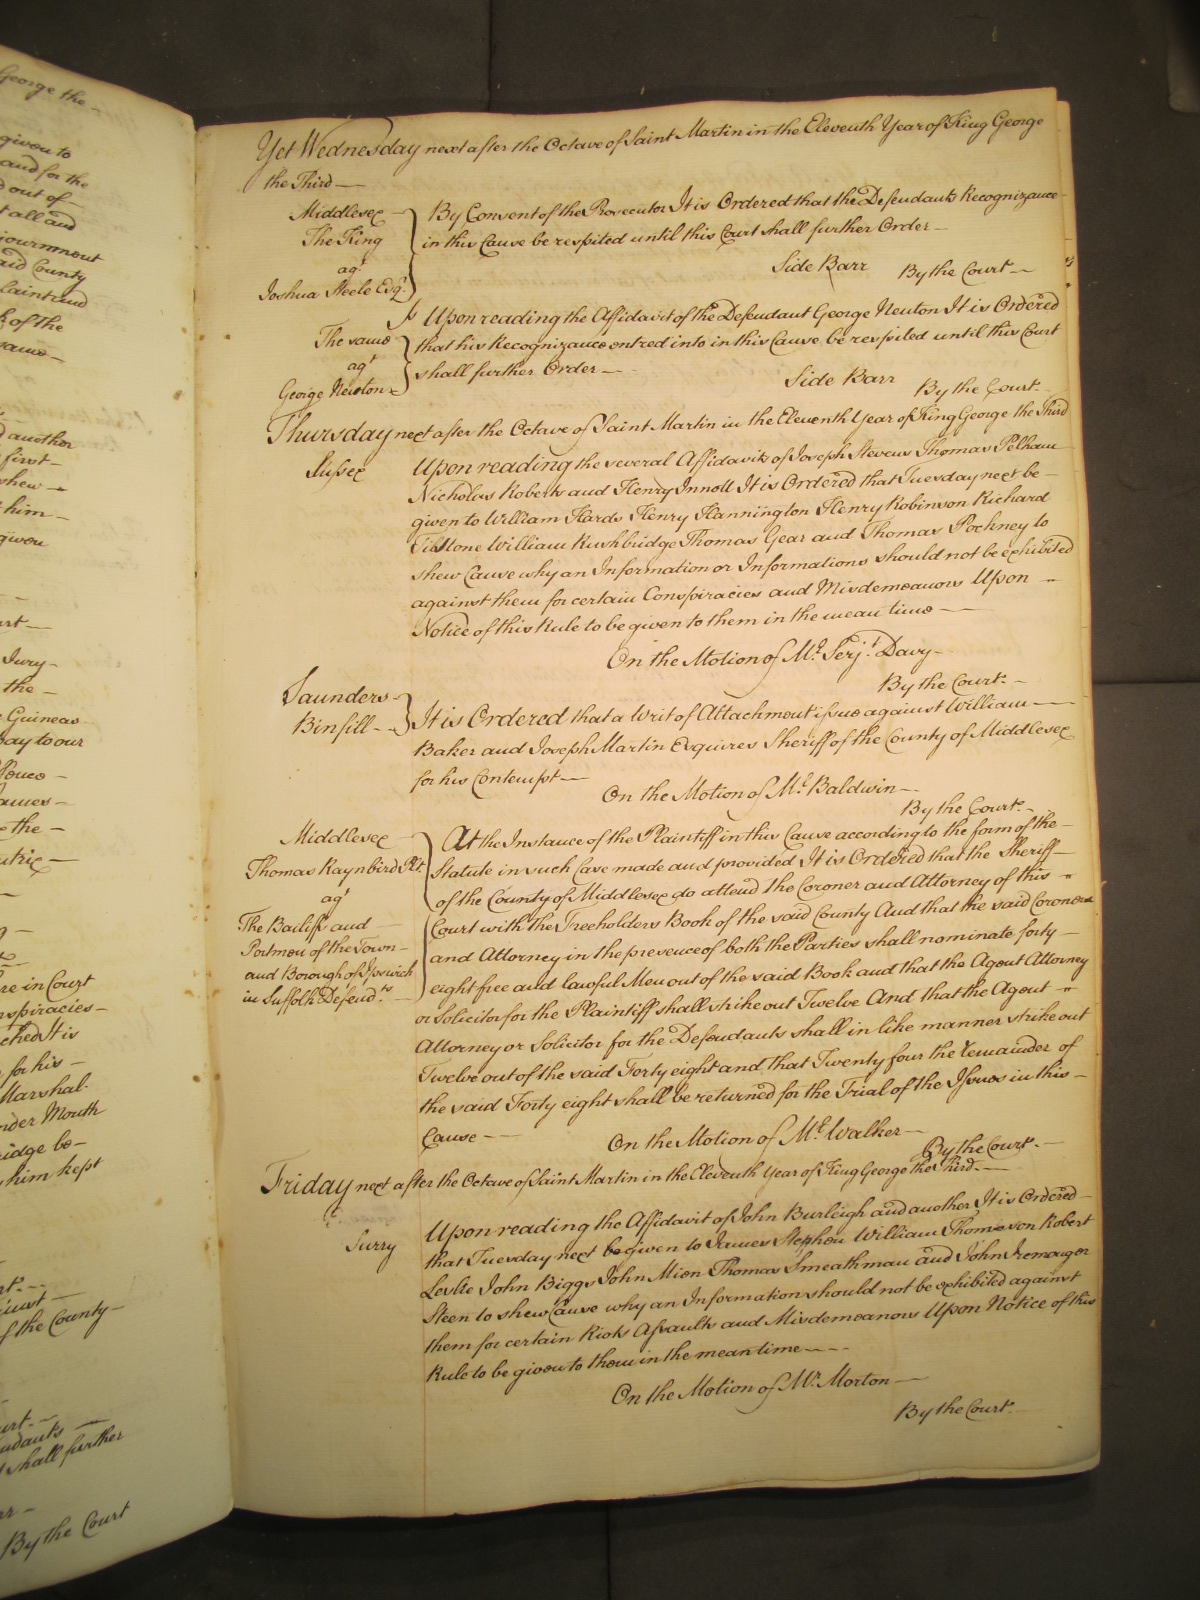 George the
given to
and for the
out of
t all and
journment
aid County
laint and
of the
same
another
first
shew
him
given
Jury
the
Guineas
pay to our
Pence
ames
the
re in Court
nspiracies
ched It is
for his
Marshal
nder Mouth
idge be
him kept
of the County
endants
shall further
By the Court
Yet Wednesday next after the Octave of Saint Martin in the Eleventh Year of King George
the Third
Middlesex
The King
agt
Joshua Steele Esqr.
By Consent of the Prosecutor It is Ordered that the Defendants Recognizance
in this Cause be respited until this Court shall further Order
Side Barr By the Court
The same
agt
George Newton
Upon reading the Affidavit of the Defendant George Newton It is Ordered
that his Recognizance entred into in this Cause be respited until this Court
shall further Order
Side Barr By the Court
Thursday next after the Octave of Saint Martin in the Eleventh Year of King George the Third
Sussex
Upon reading the several Affidavits of Joseph Stevens Thomas Pelham
Nicholas Roberts and Henry Innoll It is Ordered that Tuesday next be
given to William Hards Henry Hannington Henry Robinson Richard
Tibstone William Rushbridge Thomas Gear and Thomas Pockney to
shew Cause why an Information or Informations should not be exhibited
against them for certain Conspiracies and Misdemeanors Upon
Notice of this Rule to be given to them in the mean time
On the Motion of Mr. Serjt. Davy
By the Court
Saunders
Binfill
It is Ordered that a Writ of Attachment issue against William
Baker and Joseph Martin Esquires Sheriff of the County of Middlesex
for his Contempt
On the Motion of Mr. Baldwin
By the Court
Middlesex
Thomas Raynbird Plt.
agt
The Bailiffs and
Portmen of the Town
and Borough of Ipswich
in Suffolk Defendts.
At the Instance of the Plaintiff in this Cause according to the form of the
Statute in such Case made and provided It is Ordered that the Sheriff
of the County of Middlesex do attend the Coroner and Attorney of this
Court with the Freeholders Book of the said County And that the said Coroner
and Attorney in the presence of both the Parties shall nominate forty
eight free and lawful Men out of the said Book and that the Agent Attorney
or Solicitor for the Plaintiff shall strike out Twelve And that the Agent
Attorney or Solicitor for the Defendants shall in like manner strike out
Twelve out of the said Forty eight and that Twenty four the remainder of
the said Forty eight shall be returned for the Trial of the Issues in this
Cause
On the Motion of Mr. Walker
By the Court
Friday next after the Octave of Saint Martin in the Eleventh Year of King George the Third
Surry
Upon reading the Affidavit of John Burleigh and another It is Ordered
that Tuesday next be given to James Stephen William Thomson Robert
Leslie John Biggs John Mien Thomas Smeathman and John Iremonger
Steen to shew Cause why an Information should not be exhibited against
them for certain Riots Assaults and Misdemeanors Upon Notice of this
Rule to be given to them in the mean time
On the Motion of Mr. Morton
By the Court